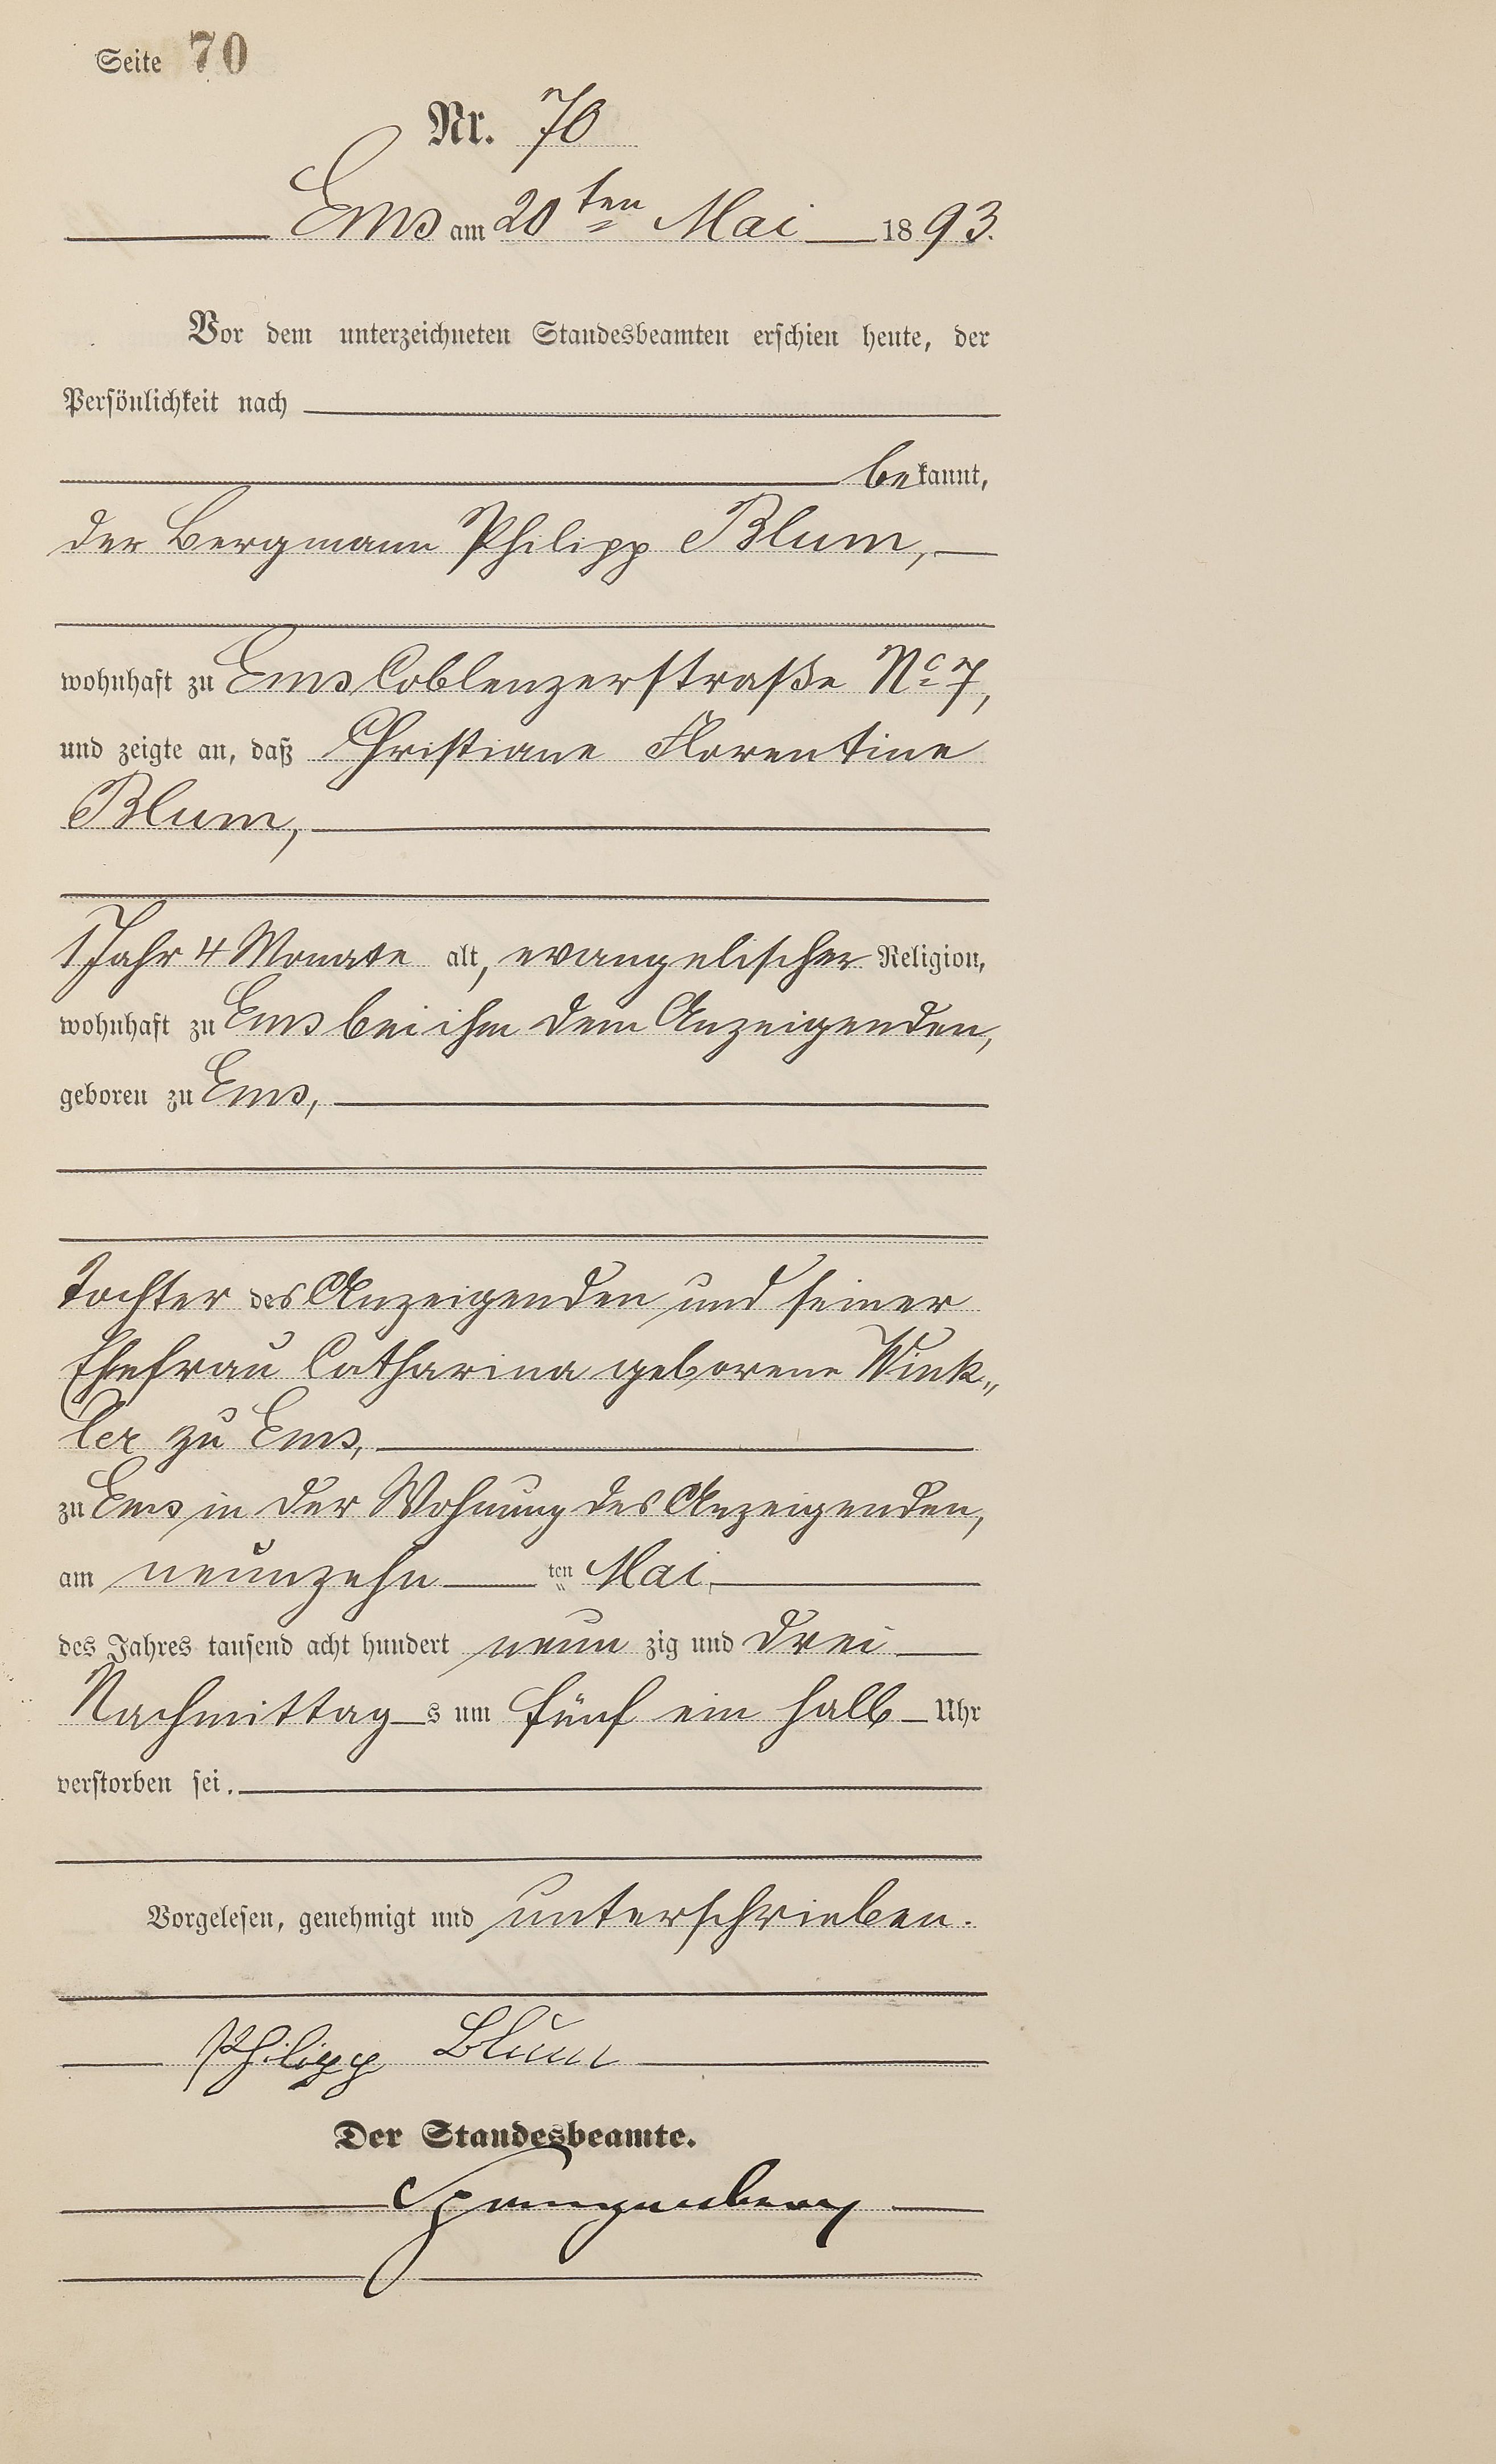 Seite 70
Nr. 70
Ems am 20ten Mai 1893.
Vor dem unterzeichneten Standesbeamten erschien heute, der
Persönlichkeit nach
bekannt,
der Bergmann Philipp Blum,
wohnhaft zu Ems Coblenzerstraße No 7,
und zeigte an, daß Christiane Florentine
Blum,
1 Jahr 4 Monate alt, evangelischer Religion,
wohnhaft zu Ems bei ihm dem Anzeigenden,
geboren zu Ems,
Tochter des Anzeigenden und seiner
Ehefrau Catharina geborene Wink„
ler zu Ems,
zu Ems in der Wohnung des Anzeigenden,
am neunzehnten Mai
des Jahres tausend acht hundert neunzig und drei
Nachmittags um fünf ein halb Uhr
verstorben sei.
Vorgelesen, genehmigt und unterschrieben.
Philipp Blum
Der Standesbeamte.
Spangenberg